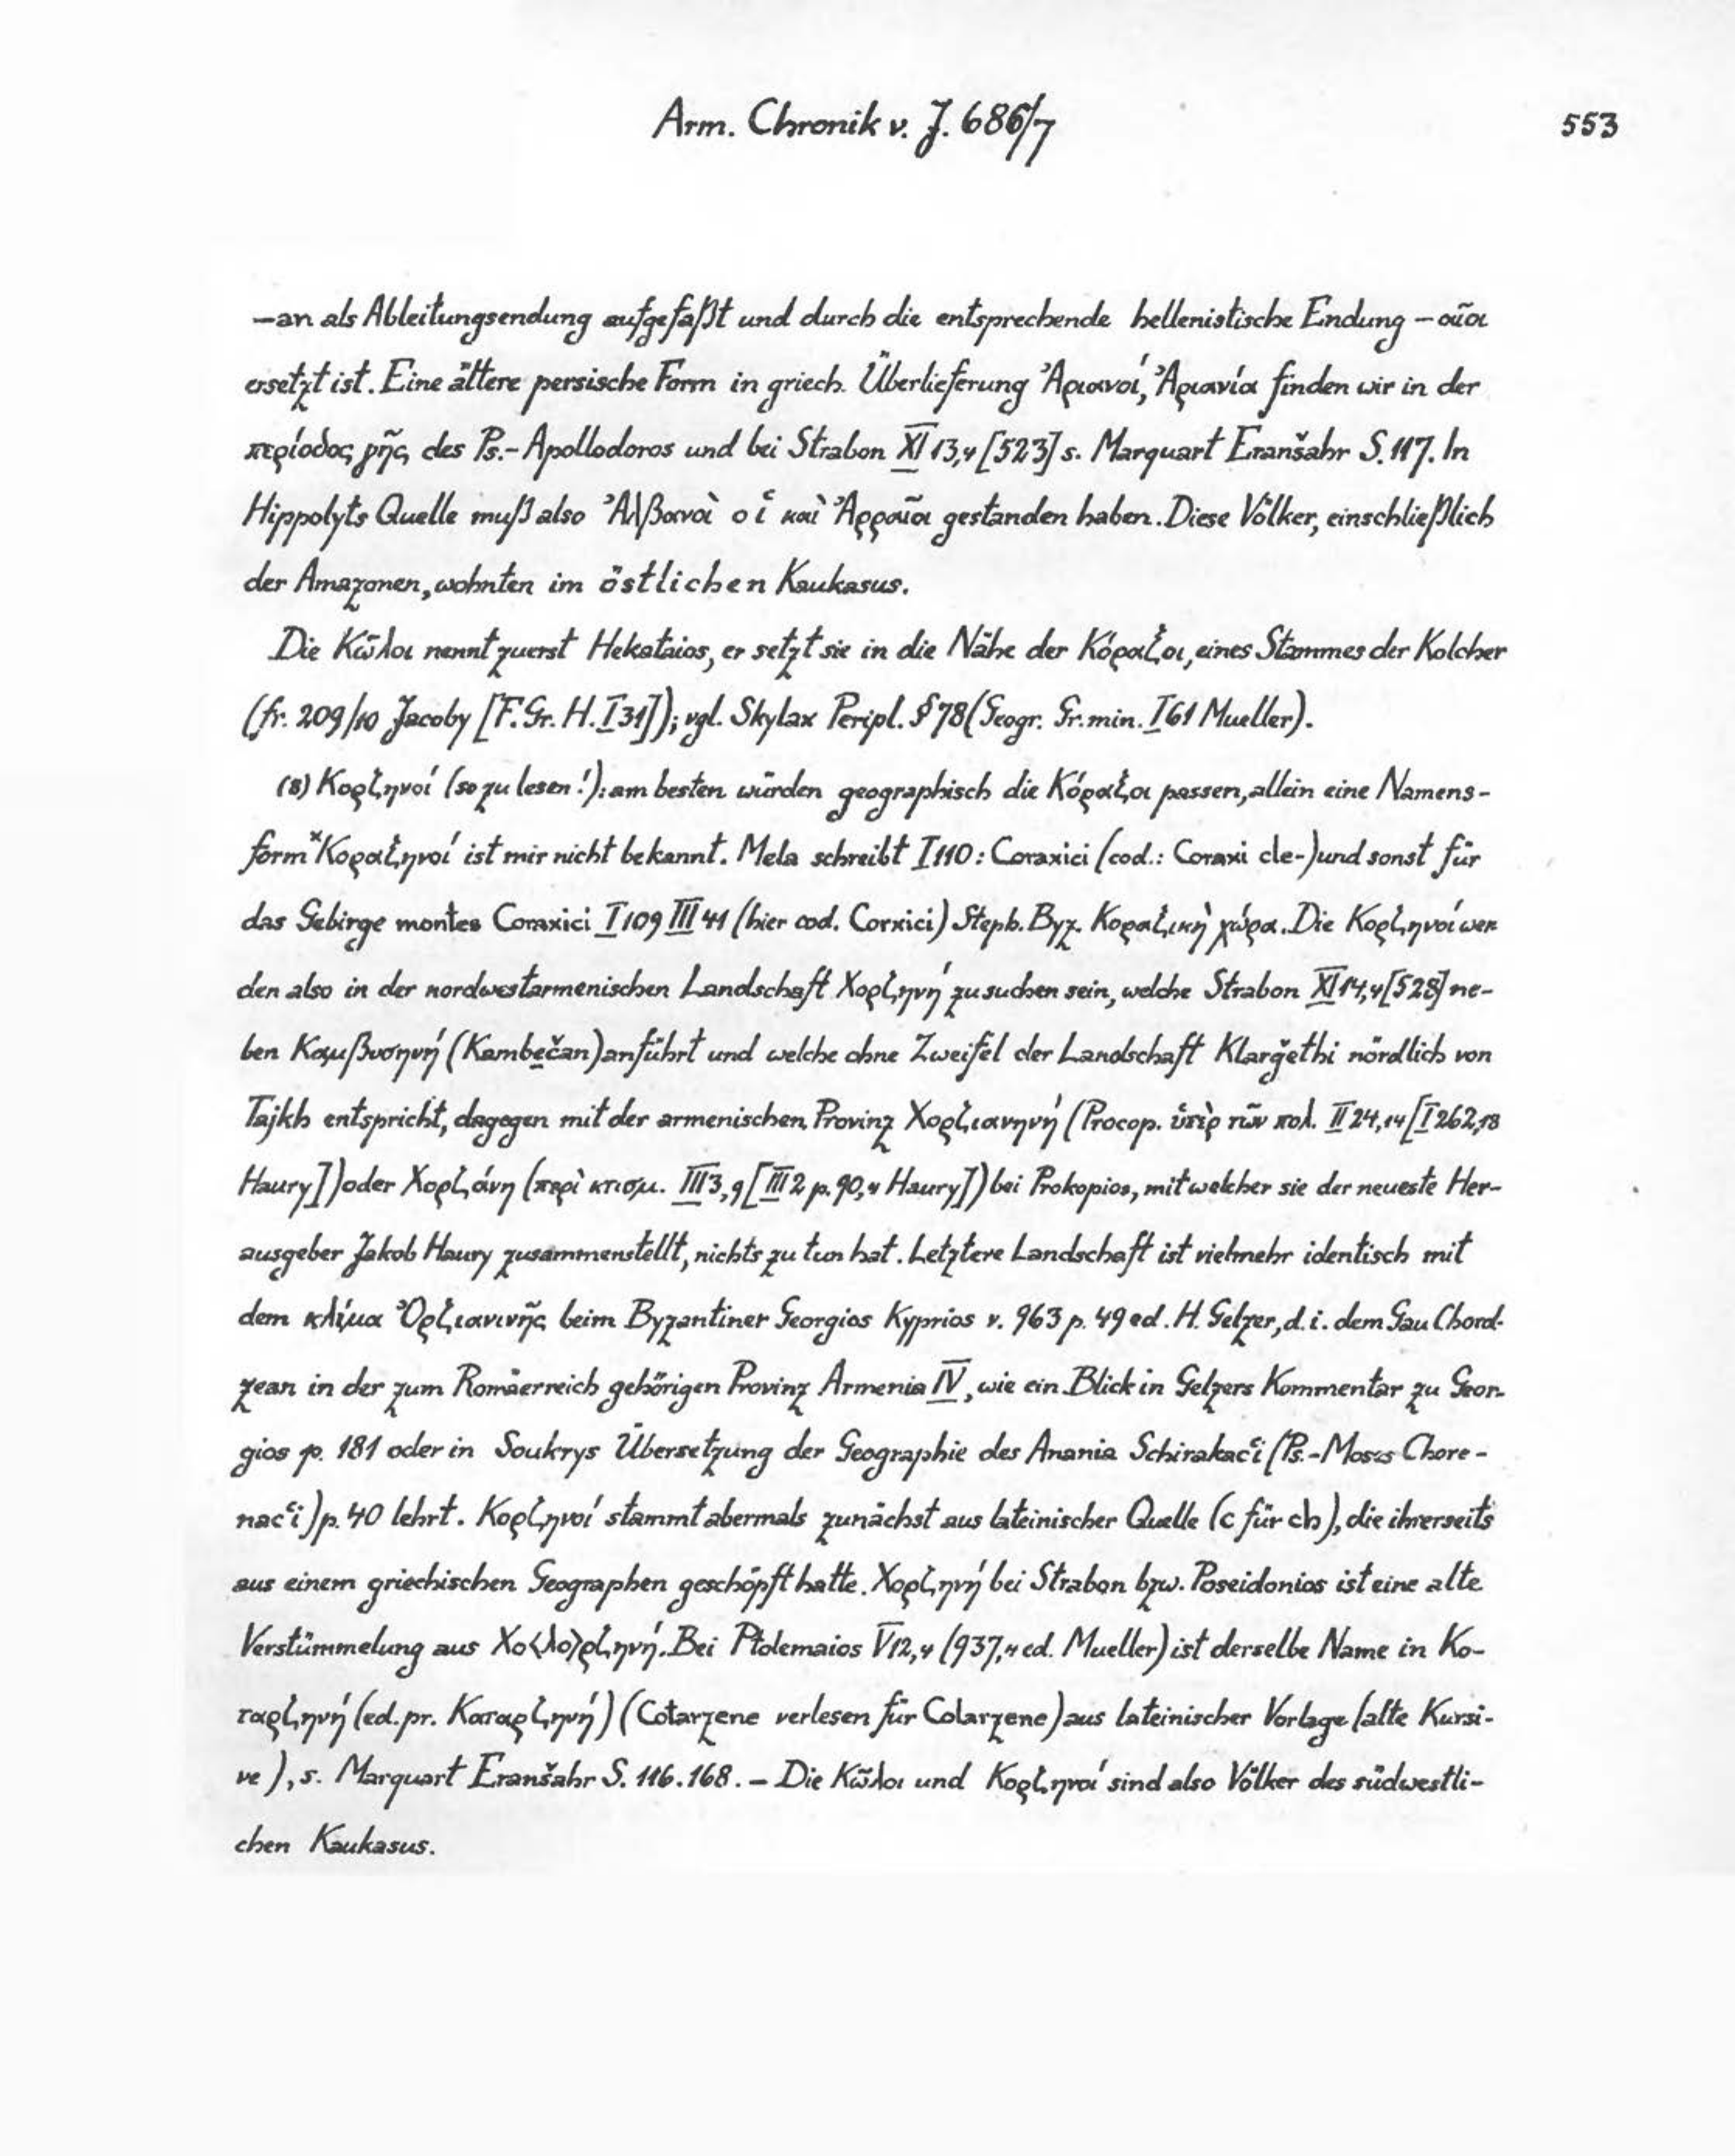 Arm. Chronik v. J. 686/7
553
–an als Ableitungsendung aufgefaßt und durch die entsprechende hellenistische Endung –αῖοι
ersetzt ist. Eine ältere persische Form in griech. Überlieferung Ἀριανοί, Ἀριανία finden wir in der
περίοδος γῆς des Ps.-Apollodoros und bei Strabon XI 13,4 [523] s. Marquart Eranšahr S. 117. In
Hippolyts Quelle muß also Ἀλβανοὶ οἱ καὶ Ἀρραῖοι gestanden haben. Diese Völker, einschließlich
der Amazonen, wohnten im östlichen Kaukasus.
Die Κῶλοι nennt zuerst Hekataios, er setzt sie in die Nähe der Κόραξοι, eines Stammes der Kolcher
(fr. 209/10 Jacoby [F. Gr. H. I 31]); vgl. Skylax Peripl. § 78 (Geogr. Gr. min. I 61 Mueller).
(8) Κορζηνοί (so zu lesen!): am besten würden geographisch die Κόραξοι passen, allein eine Namens-
form *Κοραξηνοί ist mir nicht bekannt. Mela schreibt I 110: Coraxici (cod.: Coraxi cle-) und sonst für
das Gebirge montes Coraxici I 109 III 41 (hier cod. Corxici) Steph. Byz. Κοραξικὴ χώρα. Die Κορζηνοί wer
den also in der nordwestarmenischen Landschaft Χορζηνή zu suchen sein, welche Strabon XI 14,4 [528] ne-
ben Καμβυσηνή (Kambečan) anführt und welche ohne Zweifel der Landschaft Klarǧethi nördlich von
Tajkh entspricht, dagegen mit der armenischen Provinz Χορζιανηνή (Procop. ὑπὲρ τῶν πολ. II 24,14 [I 262,18
Haury]) oder Χορζάνη (περὶ κτισμ. III 3,9 [III 2 p. 90,4 Haury]) bei Prokopios, mit welcher sie der neueste Her-
ausgeber Jakob Haury zusammenstellt, nichts zu tun hat. Letztere Landschaft ist vielmehr identisch mit
dem κλίμα Ὀρζιανινῆς beim Byzantiner Georgios Kyprios v. 963 p. 49 ed. H. Gelzer, d. i. dem Gau Chord-
zean in der zum Romäerreich gehörigen Provinz Armenia IV, wie ein Blick in Gelzers Kommentar zu Geor-
gios p. 181 oder in Soukrys Übersetzung der Geographie des Anania Schirakacʿi (Ps.-Moses Chore-
nacʿi) p. 40 lehrt. Κορζηνοί stammt abermals zunächst aus lateinischer Quelle (c für ch), die ihrerseits
aus einem griechischen Geographen geschöpft hatte. Χορζηνή bei Strabon bzw. Poseidonios ist eine alte
Verstümmelung aus Χο<λο>ρζηνή. Bei Ptolemaios V 12,4 (937,4 ed. Mueller) ist derselbe Name in Κο-
ταρζηνή (ed. pr. Καταρζηνή) (Cotarzene verlesen für Colarzene) aus lateinischer Vorlage (alte Kursi-
ve), s. Marquart Eranšahr S. 116. 168. – Die Κῶλοι und Κορζηνοί sind also Völker des südwestli-
chen Kaukasus.